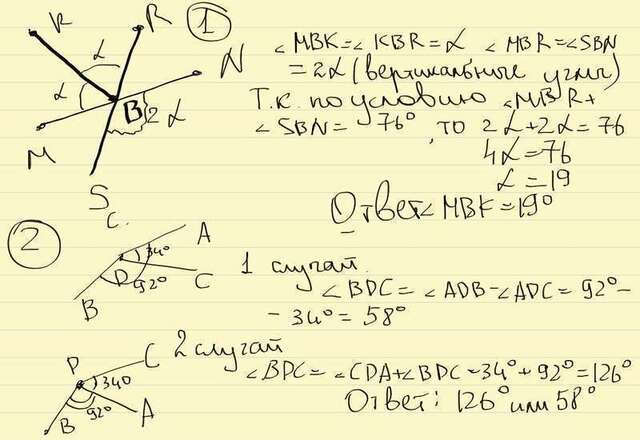 1
K
R
N
α
α
B
2α
M
S
∠MBK=∠KBR=α ∠MBR=∠SBN
=2α(вертикальные углы)
Т.к. по условию ∠MBR+
∠SBN= 76°, то 2α+2α=76
4α=76
α=19
Ответ∠MBK=19°
2
C.
A
34°
D
92°
C
B
1 случай.
∠BDC=∠ADB-∠ADC=92°-
-34°=58°
D
C
34°
92°
B
A
2 случай
∠BDC=∠CDA+∠BDC-34°+92°=126°
Ответ: 126° или 58°